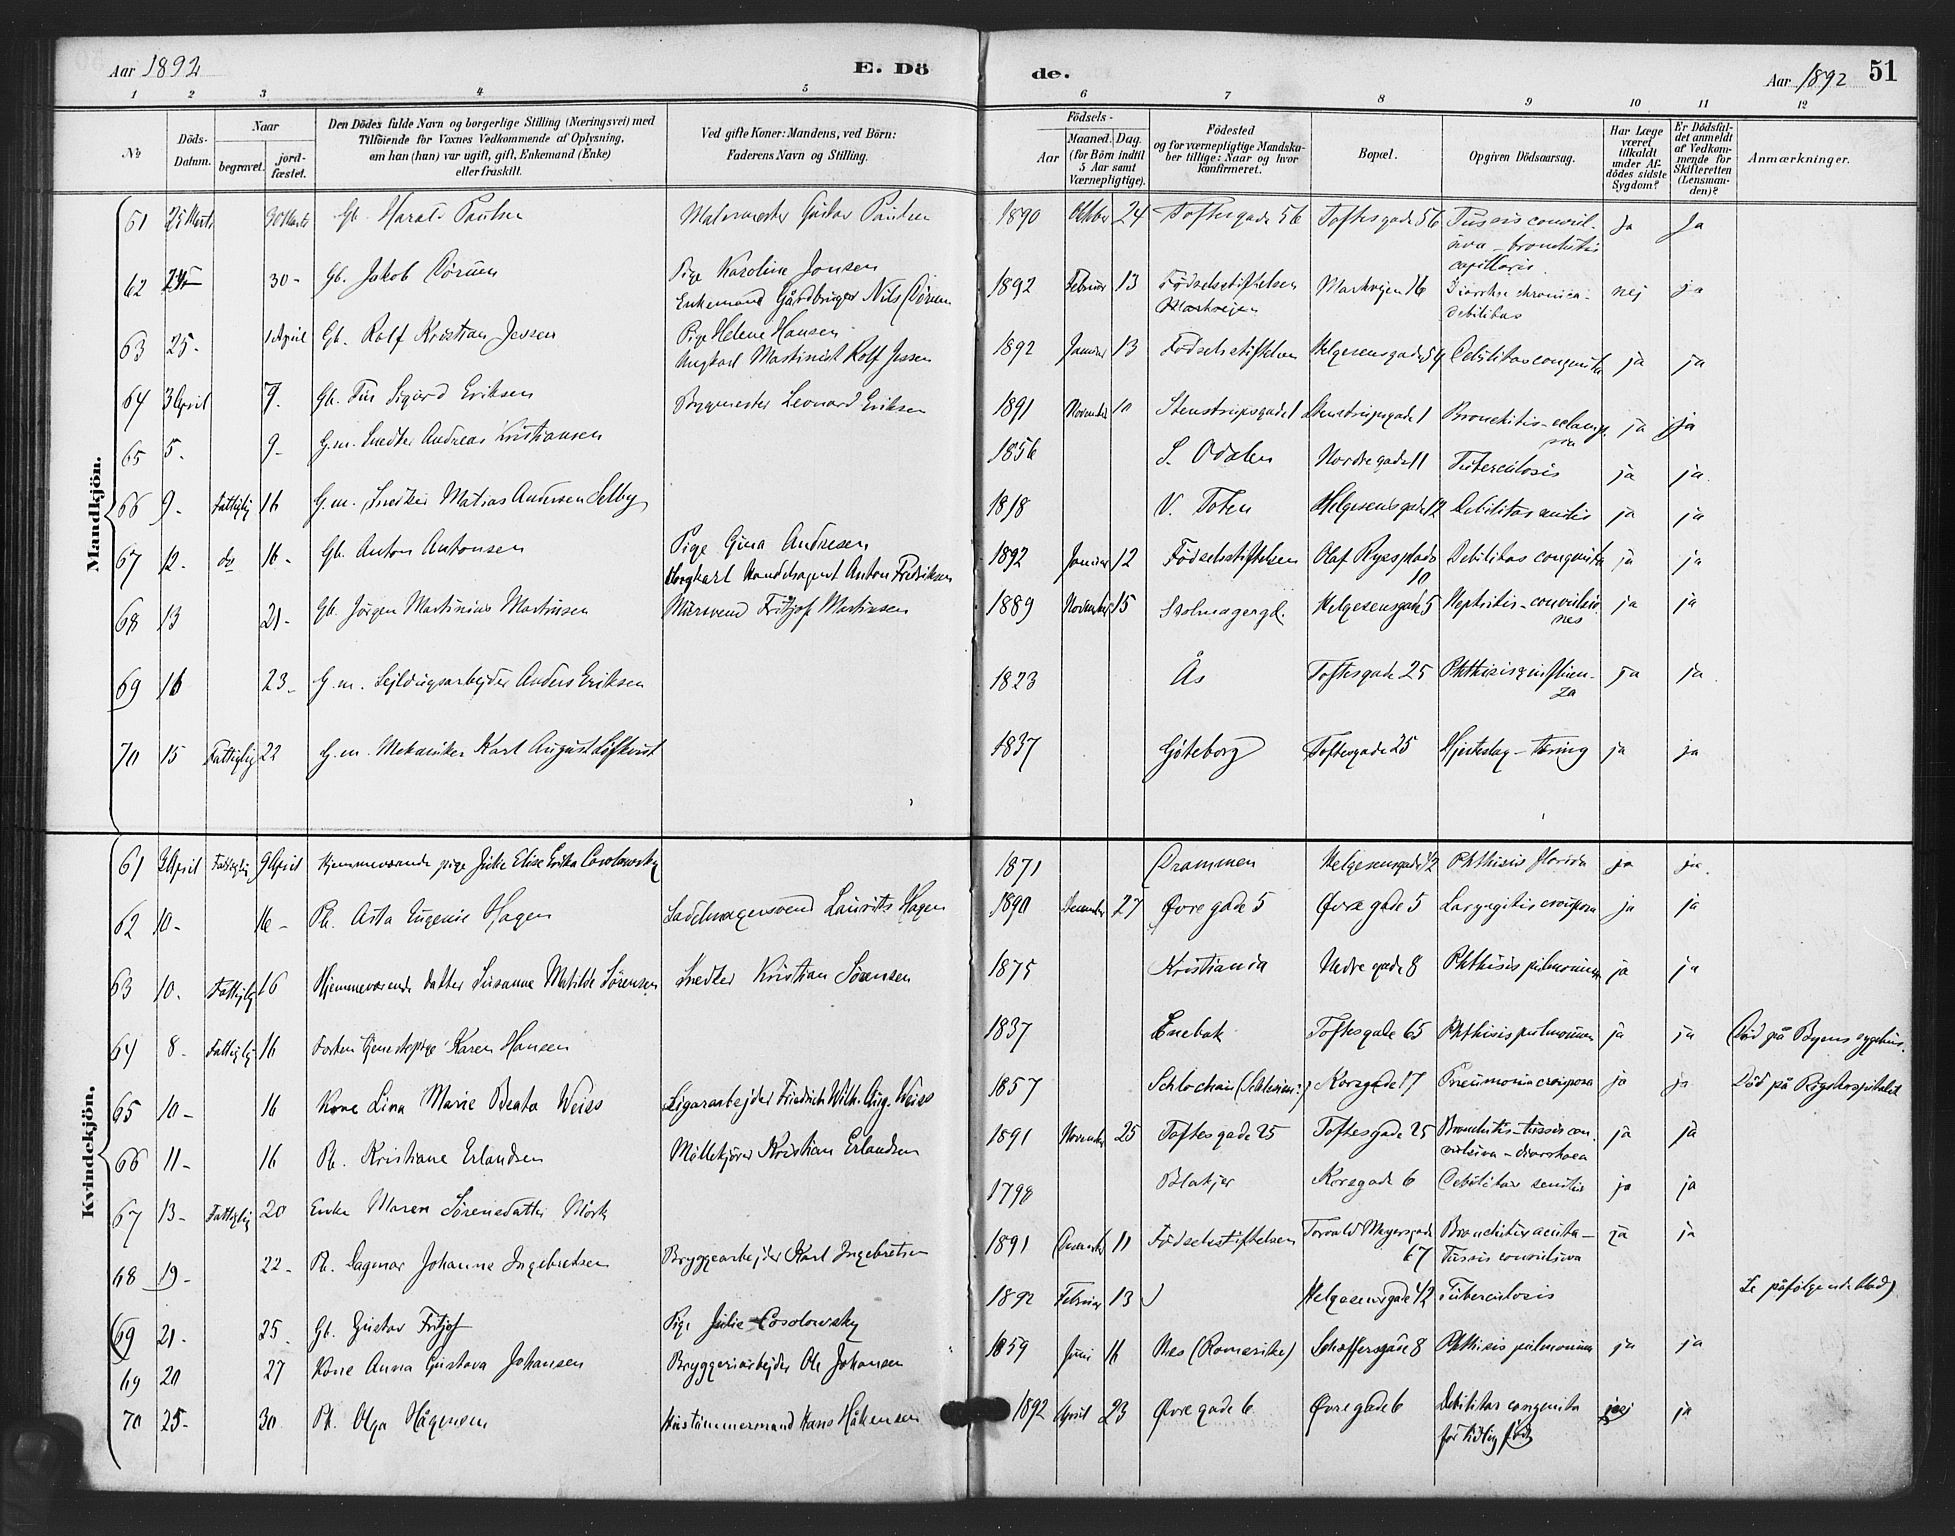 Aar 1892 E. Dö de. Aar 1892 51
1 2 3 4 5 6 7 8 9 10 11 12
№
Döds-
Datum.
Naar
begravet.
jord-
fæstet.
Den Dödes fulde Navn og borgerlige Stilling (Næringsvei) med
Tilföiende for Voxnes Vedkommende af Oplysning,
om han (hun) var ugift, gift, Enkemand (Enke)
eller fraskilt.
Ved gifte Koner: Mandens, ved Börn:
Faderens Navn og Stilling.
Födsels-
Aar
Maaned. Dag.
(for Börn indtil
5 Aar samt
Værnepligtige).
Födested
og for værnepligtige Mandska-
ber tillige: Naar og hvor
konfirmeret.
Bopæl.
Opgiven Dödsaarsag.
Har Læge
været
tilkaldt
under Af-
dödes sidste
Sygdom?
Er Dödsfal-
det anmeldt
af Vedkom-
mende for
Skifteretten
(Lensman-
den)?
Anmærkninger.
Mandkjön.
61 25 Marts 30 Marts Gb. Harald Paulsen Malermester Gustav Paulsen 1890 Oktber 24 Toftesgade 56 Toftesgade 56 Tussis convul-
siva - bronchitis
capillaris. Ja Ja
62 30 - Gb. Jakob Pige Karoline Jonsen
Enkemand Gårdbruger Nils 1892 Februar 13 Fødselsstiftelsen
Markvejen Markvejen 16 Diarrhe chronica -
debilitas nej ja
63 25 - 1 April Gb. Rolf Kristian Jessen Pige Helene Hansen
Ungkarl Maskinist Rolf Jessen 1892 Januar 13 Fødselsstiftelsen Helgesensgade 54 Debilitas congenita ja ja
64 3 April 9 - Gb. Sigurd Eriksen Bygmester Leonard Eriksen 1891 November 10 Stenstrupsgade 1 Stenstrupsgade 1 Bronchitis - eclamp-
sia ja ja
65 5 - 9 - G.m. Andreas Kristiansen 1856 S. Odalen Nordregade 11 Tuberculosis ja ja.
66 9 - Fattiglig 16 G.m. Snedker Matias Andersen Selby 1818 V. Toten Helgesensgade 12 Debilitas senilis ja ja
67 12 - do 16 - Gb. Anton Antonsen Pige Gina Andresen
Ungkarl Handelsagent Anton Fredriksen 1892 Januar 12 Fødselsstiftelsen Olaf Ryesplads
10 Debilitas congenita ja ja
68 13 21 - Gb. Jørgen Martinius Martinsen Mursvend Fritjof Martinsen 1889 November 15 Helgesensgade 5 Nephritis - convulsio-
nes ja ja
69 16 23 - G.m. Anders Eriksen 1823 Ås Toftesgade 25 Phthisis influen-
za ja ja.
70 15 Fattiglig 22 G.m. Mekaniker Karl August Løfkvist 1837 Göteborg Toftesgade 25 Hjerteslag - tæring ja ja
Kvindekjön.
61 April Fattiglig 9 April Hjemmeværende pige Julie Elise Erika Cosolowsky 1871 Drammen Helgesensgade 42 Phthisis florida ja ja.
62 10 - 16 - Pb. Asta Eugenie Hagen Sadelmagersvend Laurits Hagen 1890 December 27 Øvregade 5 Øvregade 5 Laryngitis crouposa ja ja
63 10 - Fattiglig 16 Hjemmeværende datter Susanne Matilde Sørensen Snedker Kristian Sørensen 1875 Kristiania Nedregade 8 Phthisis pulmonum ja ja
64 8 - Fattiglig 16 Forhen tjenestepige Karen Hansen 1837 Enebak Toftesgade 65 Phthisis pulmonum ja ja Død på Byens sygehus.
65 10 - 16 Kone Lina Marie Beata Weiss Sigararbejder Friedrich Wilh. Aug. Weiss 1857 Schlochau (Schlesien?) Korsgade 17 Pneumonia crouposa ja ja Død på Rigshospitalet
66 11 - 16 Pb. Kristiane Erlandsen Møllekjører Kristian Erlandsen 1891 November 25 Toftesgade 25 Toftesgade 25 Bronchitis - tussis con-
vulsiva - diarrhoea ja ja
67 13 - Fattiglig 20 Enke Maren Sørensdatter 1798 Blakjer Korsgade 6 Debilitas senilis ja ja
68 19 - 22 - Pb. Dagmar Johanne Ingebretsen Bryggearbejder Karl Ingebretsen 1891 December 11 Fødselsstiftelsen Torvald Meyersgade
67 Bronchitis acuta -
Tussis convulsiva ja ja
(69 21 - 25 Gb. Gustav Fritjof Pige Julie Cosolowsky 1892 Februar 13 Helgesensgade 42 Tuberculosis Se påfølgende blad)
69 20 27 Kone Anna Gustava Johansen Bryggeriarbejder Ole Johansen 1859 Juni 16 Nes (Romerike) 8 Phthisis pulmonum ja ja
70 25 - 30 Pb. Olga Håkensen Hustømmermand Hans Håkensen 1892 April 23 Øvregade 6 Øvregade 6 Debilitas congenita
for tidlig født nej ja